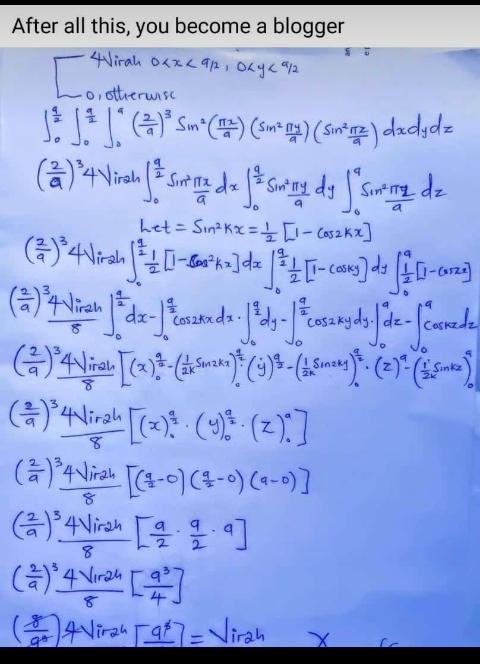 After all this, you become a blogger
4Virah 0<x<a/2, 0<y<a/2
0, otherwise
∫₀^(a/2) ∫₀^(a/2) ∫₀^a (2/a)³ Sin²(πx/a) (Sin²πy/a) (Sin²πz/a) dxdydz
(2/a)³ 4Virah ∫₀^(a/2) Sin²πx/a dx ∫₀^(a/2) Sin²πy/a dy ∫₀^a Sin²πz/a dz
Let = Sin²Kx = 1/2 [1 - Cos2Kx]
(2/a)³ 4Virah ∫₀^(a/2) 1/2 [1-Cos²Kx] dx ∫₀^(a/2) 1/2 [1-Cosky] dy ∫₀^a 1/2 [1-Cosz]
(2/a)³ 4Virah/8 ∫₀^(a/2) dx - ∫₀^(a/2) Cos2Kx dx · ∫₀^(a/2) dy - ∫₀^(a/2) Cos2Ky dy · ∫₀^a dz - ∫₀^a Coskzdz
(2/a)³ 4Virah/8 [(x)₀^(a/2) - (1/2K Sin2Kx)₀^(a/2) · (y)₀^(a/2) - (1/2K Sin2Ky)₀^(a/2) · (z)₀^a - (1/2K Sinkz)₀^a
(2/a)³ 4Virah/8 [(x)₀^(a/2) · (y)₀^(a/2) · (z)₀^a]
(2/a)³ 4Virah/8 [(a/2-0) (a/2-0) (a-0)]
(2/a)³ 4Virah/8 [a/2 · a/2 · a]
(2/a)³ 4Virah/8 [a³/4]
(8/a³) 4Virah [a³ = Virah